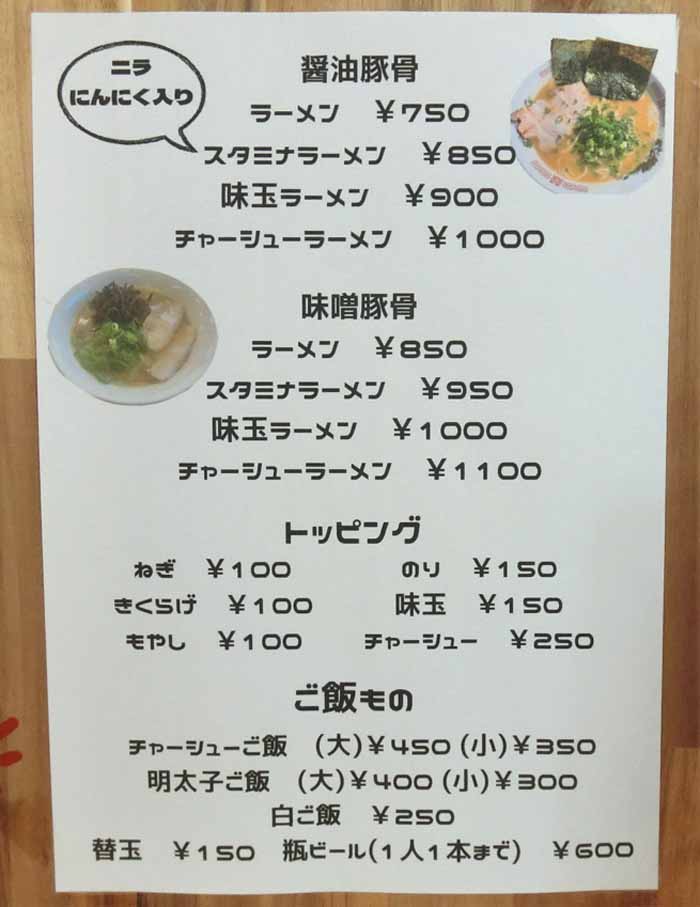 ニラ
にんにく入り
醤油豚骨
ラーメン ¥750
スタミナラーメン ¥850
味玉ラーメン ¥900
チャーシューラーメン ¥1000
味噌豚骨
ラーメン ¥850
スタミナラーメン ¥950
味玉ラーメン ¥1000
チャーシューラーメン ¥1100
トッピング
ねぎ ¥100 のり ¥150
きくらげ ¥100 味玉 ¥150
もやし ¥100 チャーシュー ¥250
ご飯もの
チャーシューご飯 (大)¥450 (小)¥350
明太子ご飯 (大)¥400 (小)¥300
白ご飯 ¥250
替玉 ¥150 瓶ビール(1人1本まで) ¥600